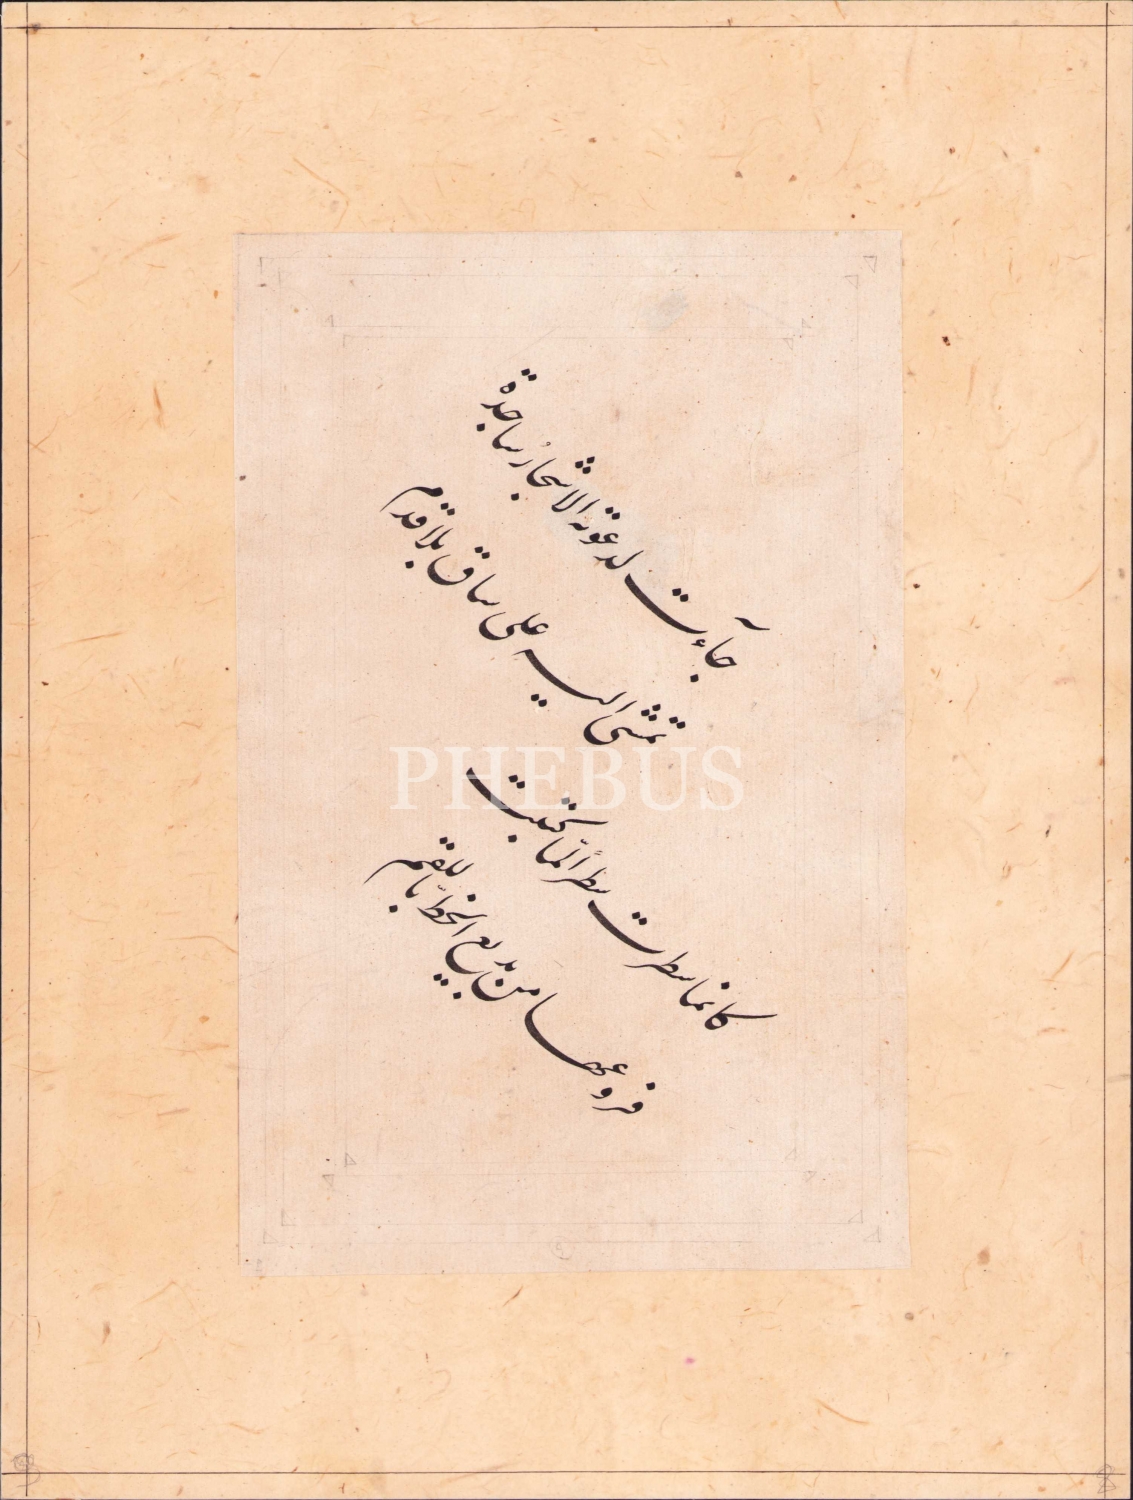 جآءت لدعوته الاشجارُ ساجدة
تمشى اليه على ساق بلا قدم
كانما سطرت سطراً لما كتبت
فروعها من بديع الخطّ باللقم
PHEBUS